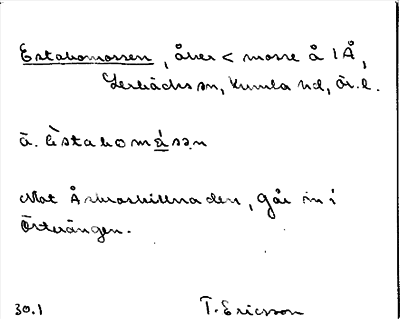 Estabomossen, åker < mosse å 1Å,
Lerbäcks sn, Kumla hd, Ör. l.
ä. èstabomåsən
Mot Åsbroskillnaden, går in i
Österängen.
30.1 T. Ericsson